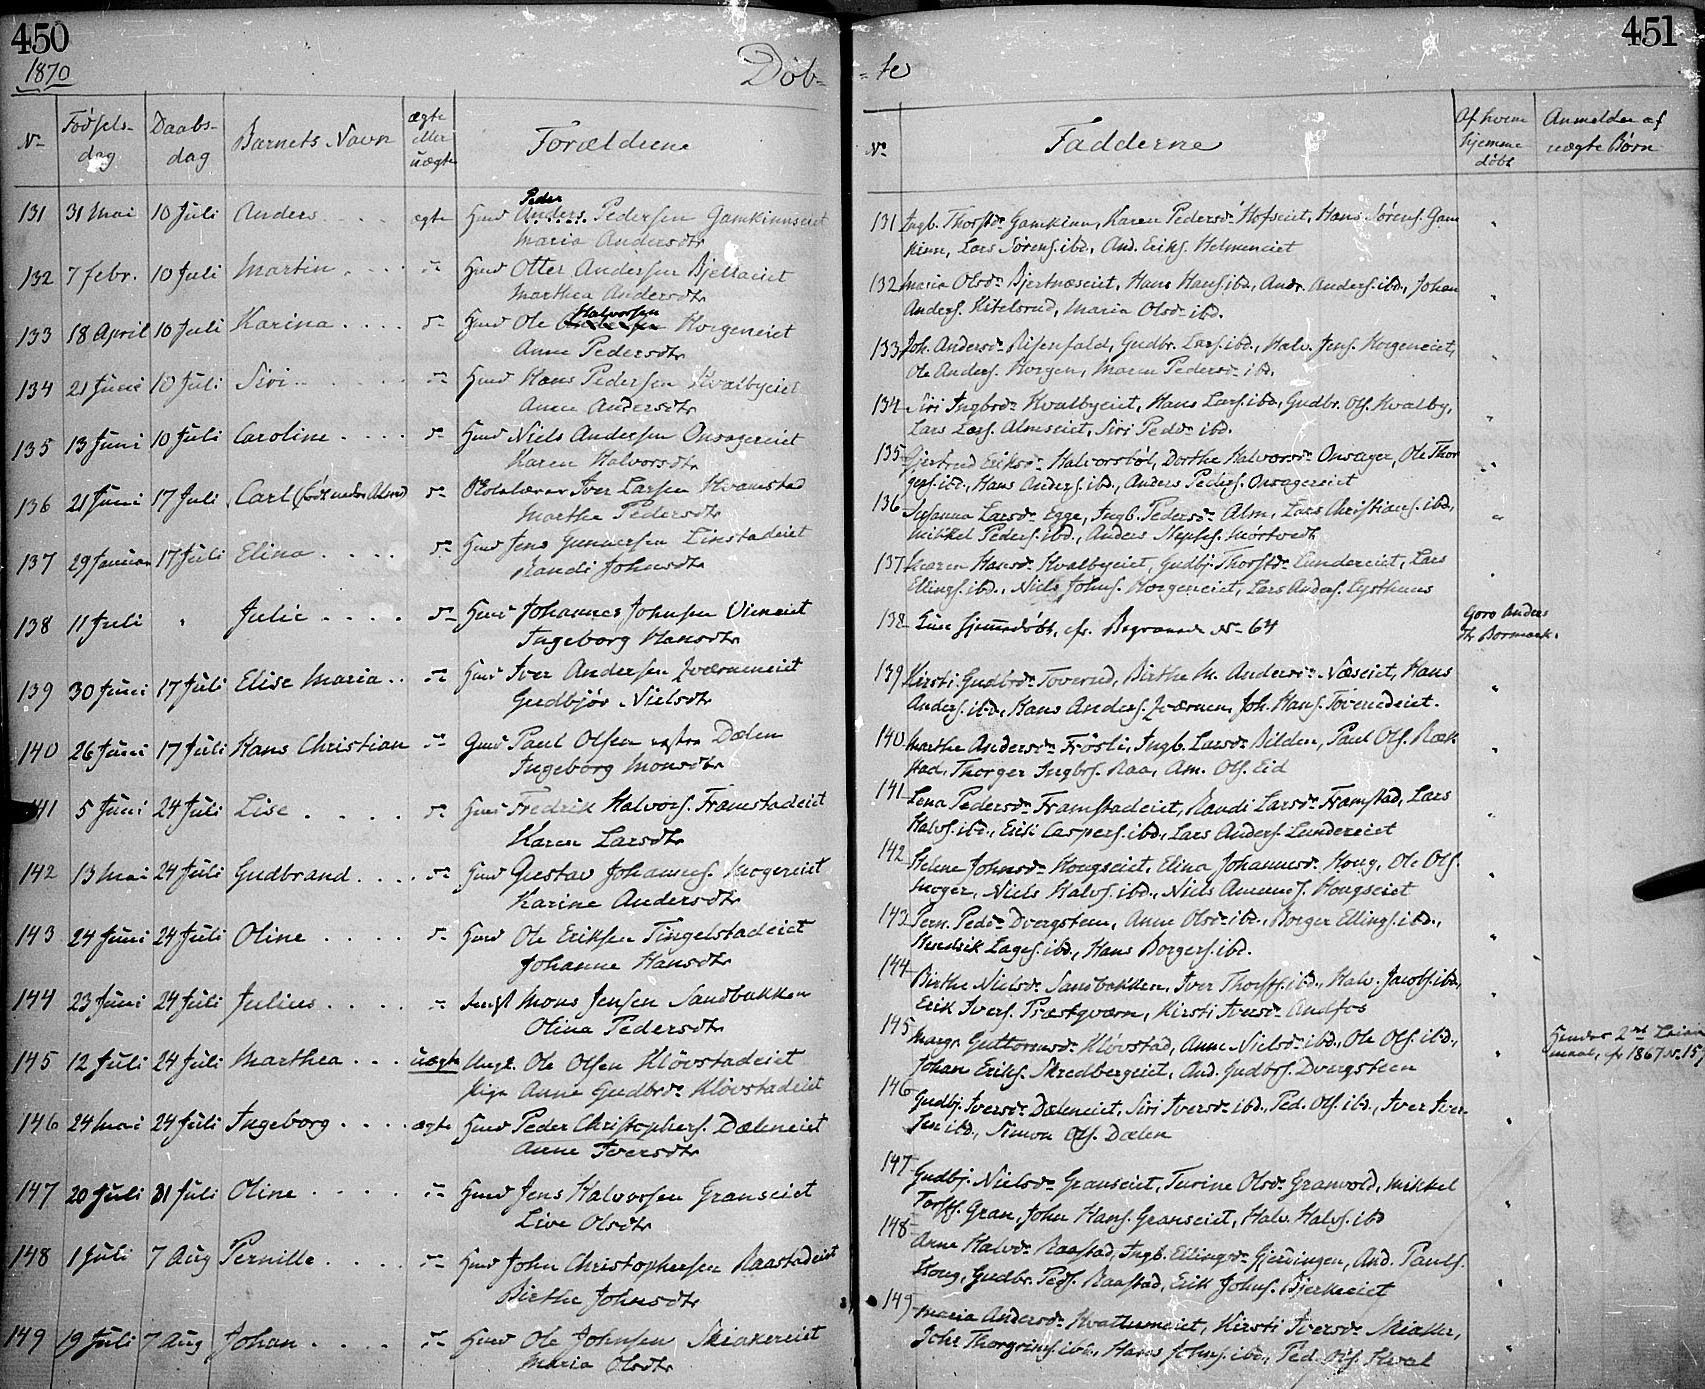 450
1870
Döb-
No
Födsels-
dag
Daabs-
dag
Barnets Navn
ægte
eller
uægte
Forældrene
131 31 Mai 10 Juli Anders ægte Huusm Peder Anders Pedersen Gamkinnseiet
Maria Andersdtr
132 7 Febr. 10 Juli Martin Huusm Otter Andersen Bjellaeiet
Marthea Andersdtr
133 18 April 10 Juli Karina Huusm Ole Halvorsen Horgeneiet
Anne Pedersdtr
134 21 Juni 10 Juli Siri Huusm Hans Pedersen Hvalbyeiet
Anne Andersdtr
135 13 Juni 10 Juli Caroline Huusm Niels Andersen Onsagereiet
Karen Halvorsdtr
136 21 Juni 17 Juli Carl (född uden Alsrud) Skolelærer Iver Larsen Hvamstad
Marthe Pedersdtr
137 29 Januar 17 Juli Elina Huusm Jens Gundersen Linstadeiet
Randi Johnsdtr
138 11 Juli " Julie Huusm Johannes Johnsen Vieneiet
Ingeborg Hansdtr
139 30 Juni 17 Juli Elise Maria Huusm Iver Andersen Qværnneiet
Gudbjör Nielsdtr
140 26 Juni 17 Juli Hans Christian Gmd Paul Olsen östre Dælen
Ingeborg Monsdtr
141 5 Juni 24 Juli Lise Huusm Fredrik Halvors. Framstadeiet
Karen Larsdtr
142 13 Mai 24 Juli Gudbrand Huusm Gustav Johannes. Mogereiet
Karine Andersdtr
143 24 Juni 24 Juli Oline Huusm Ole Eriksen Tingelstadeiet
Johanne Hansdtr
144 23 Juni 24 Juli Julius Mons Jensen Sandbakken
Olina Pedersdtr
145 12 Juli 24 Juli Marthea uægte Ungk. Ole Olsen Klövstadeiet
Pige Anne Gudbrsd. Klövstadeiet
146 24 Mai 24 Juli Ingeborg ægte Huusm Peder Christophers. Dæleneiet
Anne Iversdtr
147 20 Juli 31 Juli Oline Huusm Jens Halvorsen Granseiet
Live Olsdtr
148 1 Juli 7 Aug Pernille Huusm John Christophersen Raastadeiet
Birthe Johnsdtr
149 19 Juli 7 Aug Johan Huusm Ole Johnsen Skiakereiet
Maria Olsdtr
451
-te
No
Fadderne
Af hvem
hjemme
döbt
Anmelder af
uægte Börn
131 Ingb. Thorstd. Gamkinn, Karen Pedersd. Hofseiet, Hans Sörens. Gam
kinn, Lars Sörens. ibd., And. Eriks. Helmeneiet
132 Maria Olsd. Bjertnæseiet, Hans Hans. ibd., Andr. Anders. ibd., Johan
Anders. Kitelsrud, Maria Olsd. ibd.
133 Joh. Andersd. Risenfald, Gudbr. Lars. ibd., Halv. Jens. Horgeneiet,
Ole Anders. Horgen, Maren Pedersd. ibd.
134 Siri Ingbrsd. Hvalbyeiet, Hans Lars. ibd., Gudbr. Ols. Hvalby,
Lars Lars. Almseiet, Siri Pedsd. ibd.
135 Gjertrud Eriksd. Halvorsböl, Dorthe Halvorsd. Onsager, Ole Thor
gers. ibd., Hans Anders. ibd., Anders Peders. Onsagereiet
136 Susanna Larsd. Egge, Ingb. Pedersd. Alm, Lars Christians. ibd.,
Mikkel Peders. ibd., Anders
137 Maren Hansd. Hvalbyeiet, Gudbj. Thorstd. Lundereiet, Lars
Ellings. ibd., Niels Johns. Horgeneiet, Lars Anders. Lysthuus
138 Hjemmedöbt, cfr. Begravede No 64 Goro Anders
dtr Bormark.
139 Kirsti Gudbrsd. Toverud, Birthe M. Andersd. Næseiet, Hans
Anders. ibd., Hans Anders. Qværnen, Joh. Hans. Toverudeiet.
140 Marthe Andersd. Frösli, Ingb. Larsd. Bilden, Paul Ols. Ræk
stad, Thorger Ingbrs. Raa, Am. Ols. Eid
141 Lena Pedersd. Framstadeiet, Randi Larsd. Framstad, Lars
Halvs. ibd., Erik Caspers. ibd., Lars Anders. Lundereiet
142 Helene Johnsd. Hougseiet, Elina Johannesd. Houg, Ole Ols.
Moger, Niels Halvs. ibd., Niels Amunds. Hougseiet
143 Pern. Pedsd. Dvergsteen, Anne Olsd. ibd., Borger Ellings. ibd.,
Hendrik Lages. ibd., Hans Borgers. ibd.
144 Birthe Nielsd. Sandbakken, Iver Thorsts. ibd., Halv. Jacobs. ibd.,
Erik Ivers. Præstqværn, Kirsti Iversd. Andfos
145 Margr. Guttormsd. Klövstad, Anne Nielsd. ibd., Ole Ols. ibd.,
Johan Eriks. Skredbergeiet, And. Gudbrs. Dvergsteen
Hendes 2det Leier
maal, cfr 1867 No 15
146 Gudbj. Iversd. Dæleneiet, Siri Iversd. ibd., Ped. Ols. ibd., Iver Iver
sen ibd., Simon Ols. Dælen
147 Gudbj. Nielsd. Granseiet, Turine Olsd. Granvold, Mikkel
Torsts. Gran, John Hans. Granseiet, Halv. Halvs. ibd
148 Anne Halvsd. Raastad, Ingb. Ellingsd. Gjerdingen, And. Pauls.
Houg, Gudbr. Peds. Raastad, Erik Johns. Bjerkeeiet
149 Maria Andersd. Hvattumeiet, Kirsti Iversd. Skiaker,
Johs Thorgrims. ibd., Hans Johns. ibd., Ped. Ols. Hval